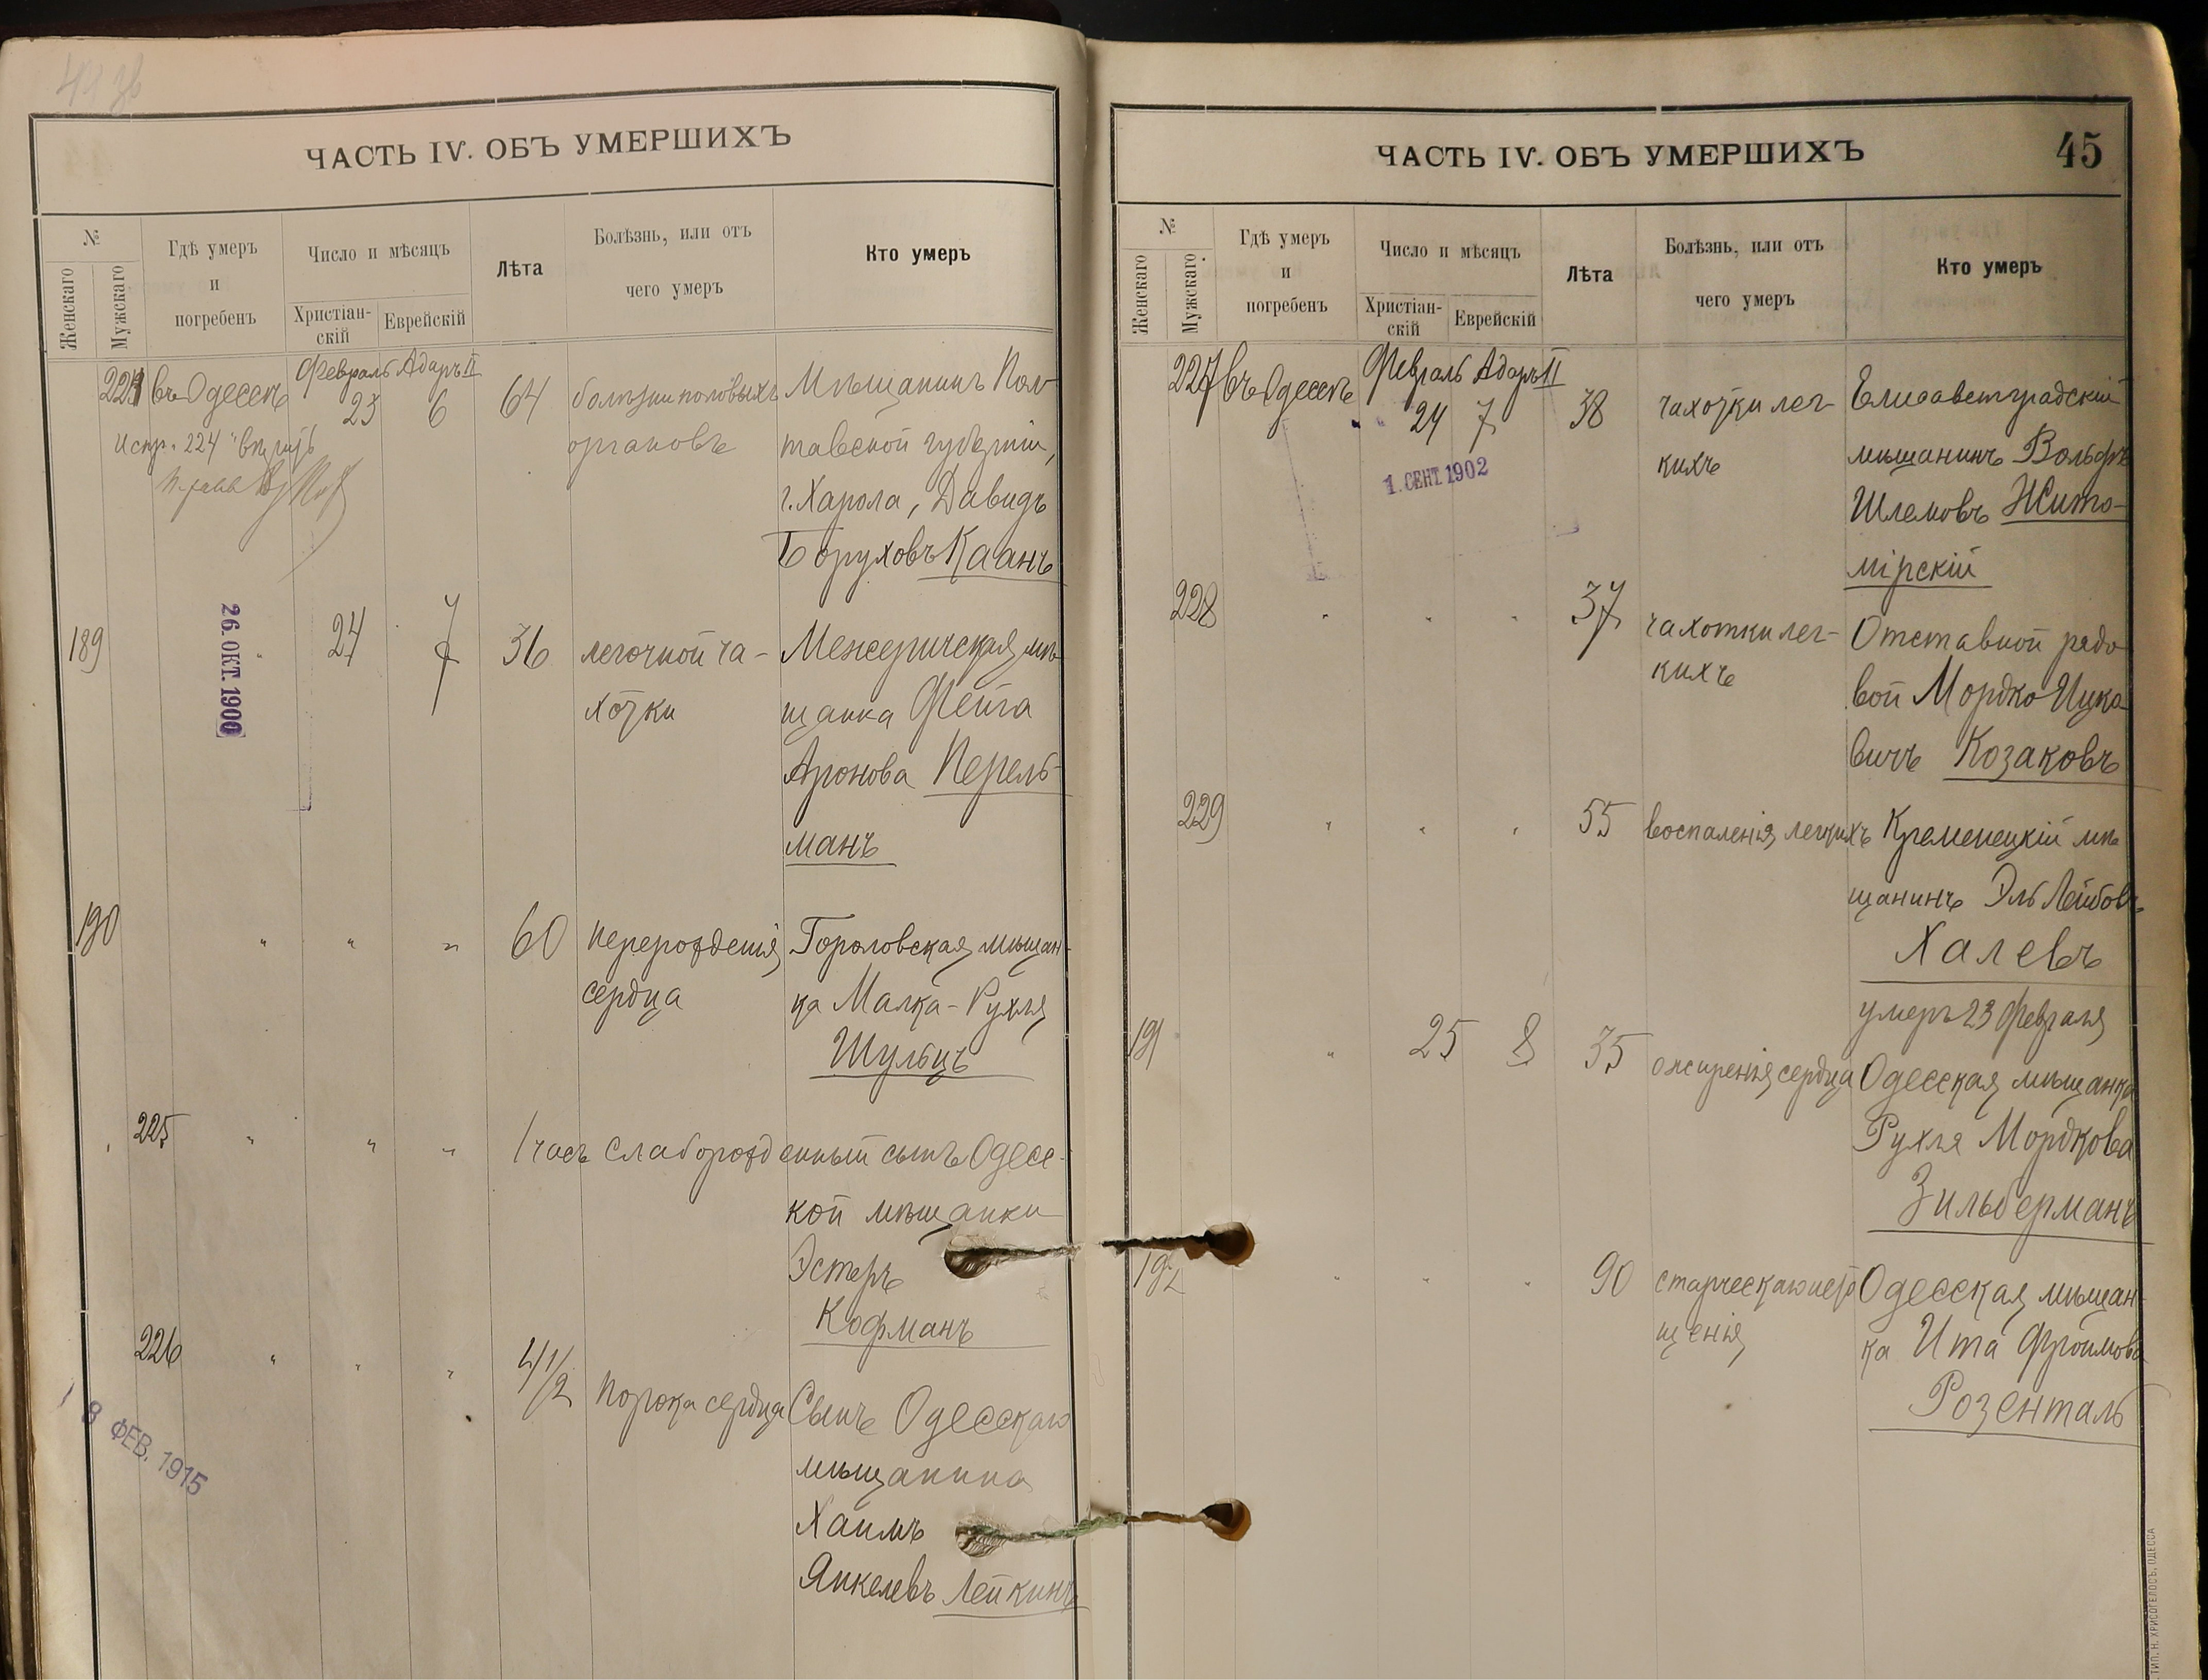 ЧАСТЬ IV. ОБЪ УМЕРШИХЪ
№
Женскаго
Мужскаго
Гдѣ умеръ
и
погребенъ
Число и мѣсяцъ
Христіан-
скій
Еврейскій
Лѣта
Болѣзнь, или отъ
чего умеръ
Кто умеръ
224 въ Одессѣ Февраль Адаръ II
23 6 64 болѣзни половыхъ Мѣщанинъ Пол-
органовъ тавской губерніи,
Испр. "224" вѣрить
г. Харола, Давидъ
Боруховъ Каанъ
26. ОКТ. 1900
189 24 7 36 легочной ча- Межеричская мѣ-
хотки щанка Фейга
Аронова Перель-
манъ
190 " " " 60 перерожденія Гороловская мѣщан-
сердца ка Малка-Рухля
Шульцъ
225 " " " 1 часъ Слаборожденный сынъ Одесс-
кой мѣщанки
Эстеръ
Кофманъ
226 " " " 4 1/2 порока сердца Сынъ Одесскаго
мѣщанина
Хаимъ
Янкелевъ Лейкинъ
8 ФЕВ. 1915
ЧАСТЬ IV. ОБЪ УМЕРШИХЪ
45
№
Женскаго
Мужскаго
Гдѣ умеръ
и
погребенъ
Число и мѣсяцъ
Христіан-
скій
Еврейскій
Лѣта
Болѣзнь, или отъ
чего умеръ
Кто умеръ
227 въ Одессѣ Февраль Адаръ II
24 7 38 чахотки лег- Елисаветградскій
кихъ мѣщанинъ Вольфъ
1. СЕНТ 1902
Шлемовъ Жито-
мірскій
228 " " " 37 чахотки лег- Отставной рядо-
кихъ вой Мордко Ицко-
вичъ Козаковъ
229 " " " 55 воспаленія легкихъ Кременецкій мѣ-
щанинъ Эль Лейбовъ
Халевъ
умеръ 23 февраля
191 " 25 8 35 ожиренія сердца Одесская мѣщанка
Рухля Мордкова
Зильберманъ
192 " " " 90 старческаго исто- Одесская мѣщан-
щенія ка Ита Фроимова
Розенталь
ТИП. Н. ХРИСОГЕЛОСЪ, ОДЕССА